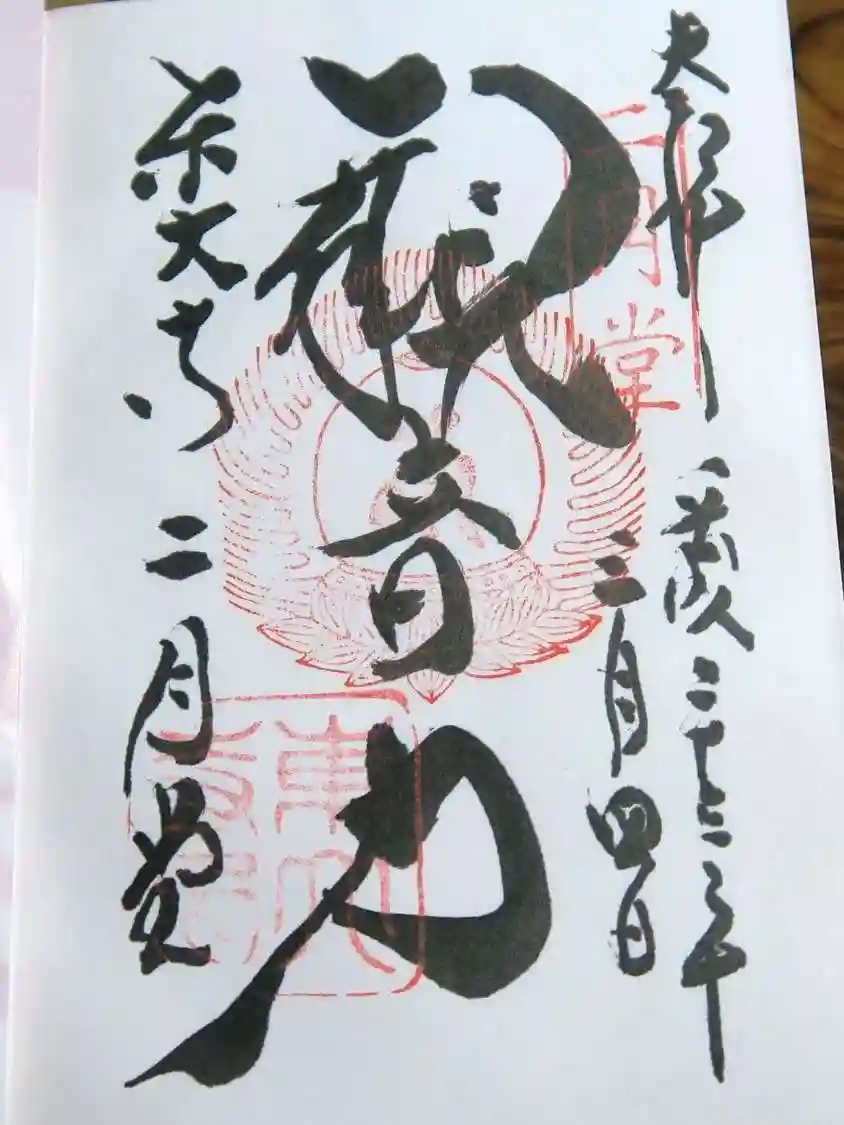 奉拝 平成二十三年
三月四日
観音力
東大寺 二月堂
二月堂
東大寺印